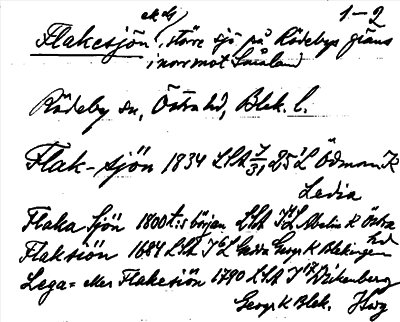 1–2
Flakesjön, större sjö på Rödebys gräns
i norr mot Småland
Rödeby sn, Östra hd, Blek. l.
Flak-sjön 1834 LSA 7/31, 25 L Ödman K
Ledia
Flaka Sjön 1800 t:s början LSA L K Östra hd
Flaksiön 1684 LSA L Gedda Geogr K Blekingen
Lega= eller Flakesiön 1790 LSA Wikenberg
Geogr K Blek.